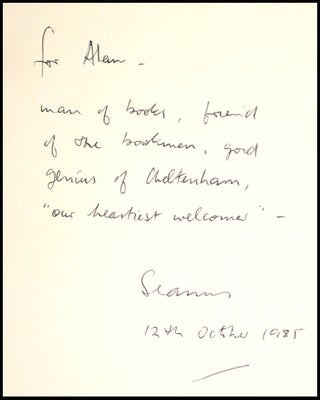 for Alan –
man of books, friend
of the bookmen, good
genius of Cheltenham,
"our heartiest welcomer" –
Seamus
12th October 1985